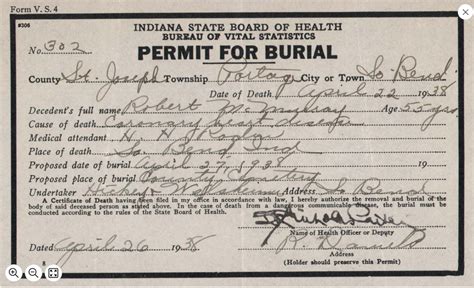 Form V. S. 4
#306
INDIANA STATE BOARD OF HEALTH
BUREAU OF VITAL STATISTICS
No. 302 PERMIT FOR BURIAL
County St. Joseph Township Portage City or Town So Bend
Date of Death April 22 1938
Decedent's full name Robert Age 55 yrs
Cause of death Coronary heart disease
Medical attendant H. H.
Place of death So. Bend Ind
Proposed date of burial April 27, 1938 19
Proposed place of burial County Cemetery
Undertaker Address So Bend
A Certificate of Death having been filed in my office in accordance with law, I hereby authorize the removal and burial of the body of said deceased person as stated above. In the case of death from a dangerous communicable disease, the burial must be
conducted according to the rules of the State Board of Health.
Name of Health Officer or Deputy
Dated April 26 1938
Address
(Holder should preserve this Permit)